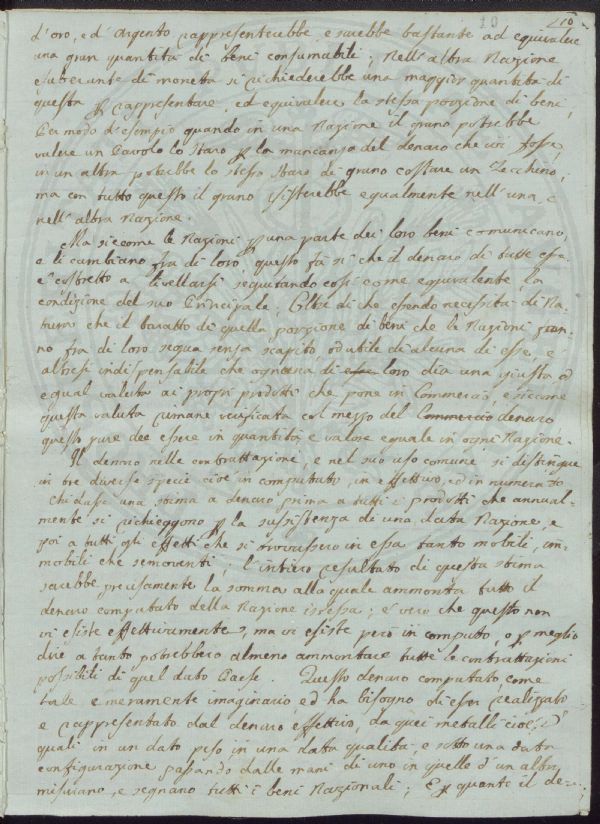 10
d'oro, ed argento rappresenterebbe e sarebbe bastante ad equivalere
una gran quantità di beni consumabili; Nell'altra Nazione
esuberante di moneta si richiederebbe una maggior quantità di
questa p rappresentare, ed equivalere la stessa porzione di beni,
Per modo d'esempio quando in una Nazione il grano potrebbe
valere un Pavolo lo staro p la mancanza del denaro che ivi fosse,
in un altra potrebbe lo stesso staro di grano costare un Zecchino,
ma con tutto questo il grano esisterebbe egualmente nell'una, e
nell'altra Nazione.
Ma siccome le Nazioni p una parte dei loro beni comunicano,
e li cambiano fra di loro, questo fà si che il denaro di tutte esse
è costretto a livellarsi seguitando così come equivalente la
condizione del suo Principale; Oltre di che essendo necessità di Na-
tura che il baratto di quella porzione di beni che le Nazioni fan-
no fra di loro segua senza scapito od utile di alcuna di esse, è
altresì indispensabile che ognuna di esse loro dia una giusta ed
egual valuta ai propri prodotti che pone in Commercio, e siccome
questa valuta rimane verificata col mezzo del Commercio denaro
questo pure dee essere in quantità e valore eguale in ogni Nazione.
Il denaro nelle contrattazioni, e nel suo uso comune si distingue
in tre diverse specie cioè in computato, in effettivo, ed in numerato
Chi dasse una stima a denaro prima a tutti i prodotti che annual-
mente si richieggono p la sussistenza di una data Nazione, e
poi a tutti gli effetti che si trovassero in essa tanto mobili, im-
mobili che semoventi; l'intiero resultato di questa stima
sarebbe precisamente la somma alla quale ammonta tutto il
denaro computato della Nazione istessa; è vero che questo non
vi esiste effettivamente, ma vi esiste però in computo, o p meglio
dire a tanto potrebbero almeno ammontare tutte le contrattazioni
possibili di quel dato Paese. Questo denaro computato, come
tale è meramente imaginario ed ha bisogno di esser realizzato
e rappresentato dal denaro effettivo, da quei metalli cioè, i
quali in un dato peso, in una data qualità, e sotto una data
configurazione passando dalle mani di uno in quelle d'un altro
misurano, e segnano tutti i beni Nazionali; E p quanto il de-